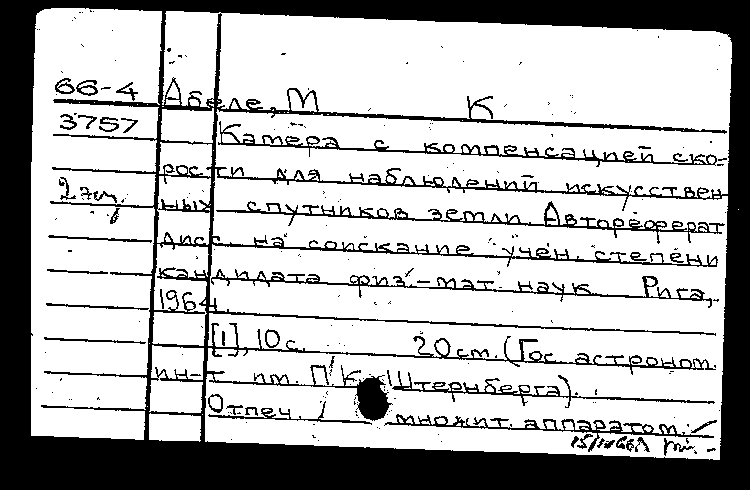 66-4 Абеле, М К
3757 Камера с компенсацией ско-
рости для наблюдений искусствен
2 экз. ных спутников земли. Автореферат
дисс. на соискание учен. степени
кандидата физ.-мат. наук. Рига,
1964.
[1], 10 с. 20 см. (Гос. астроном.
ин-т им. П К Штернберга).
Отпеч. множит. аппаратом.